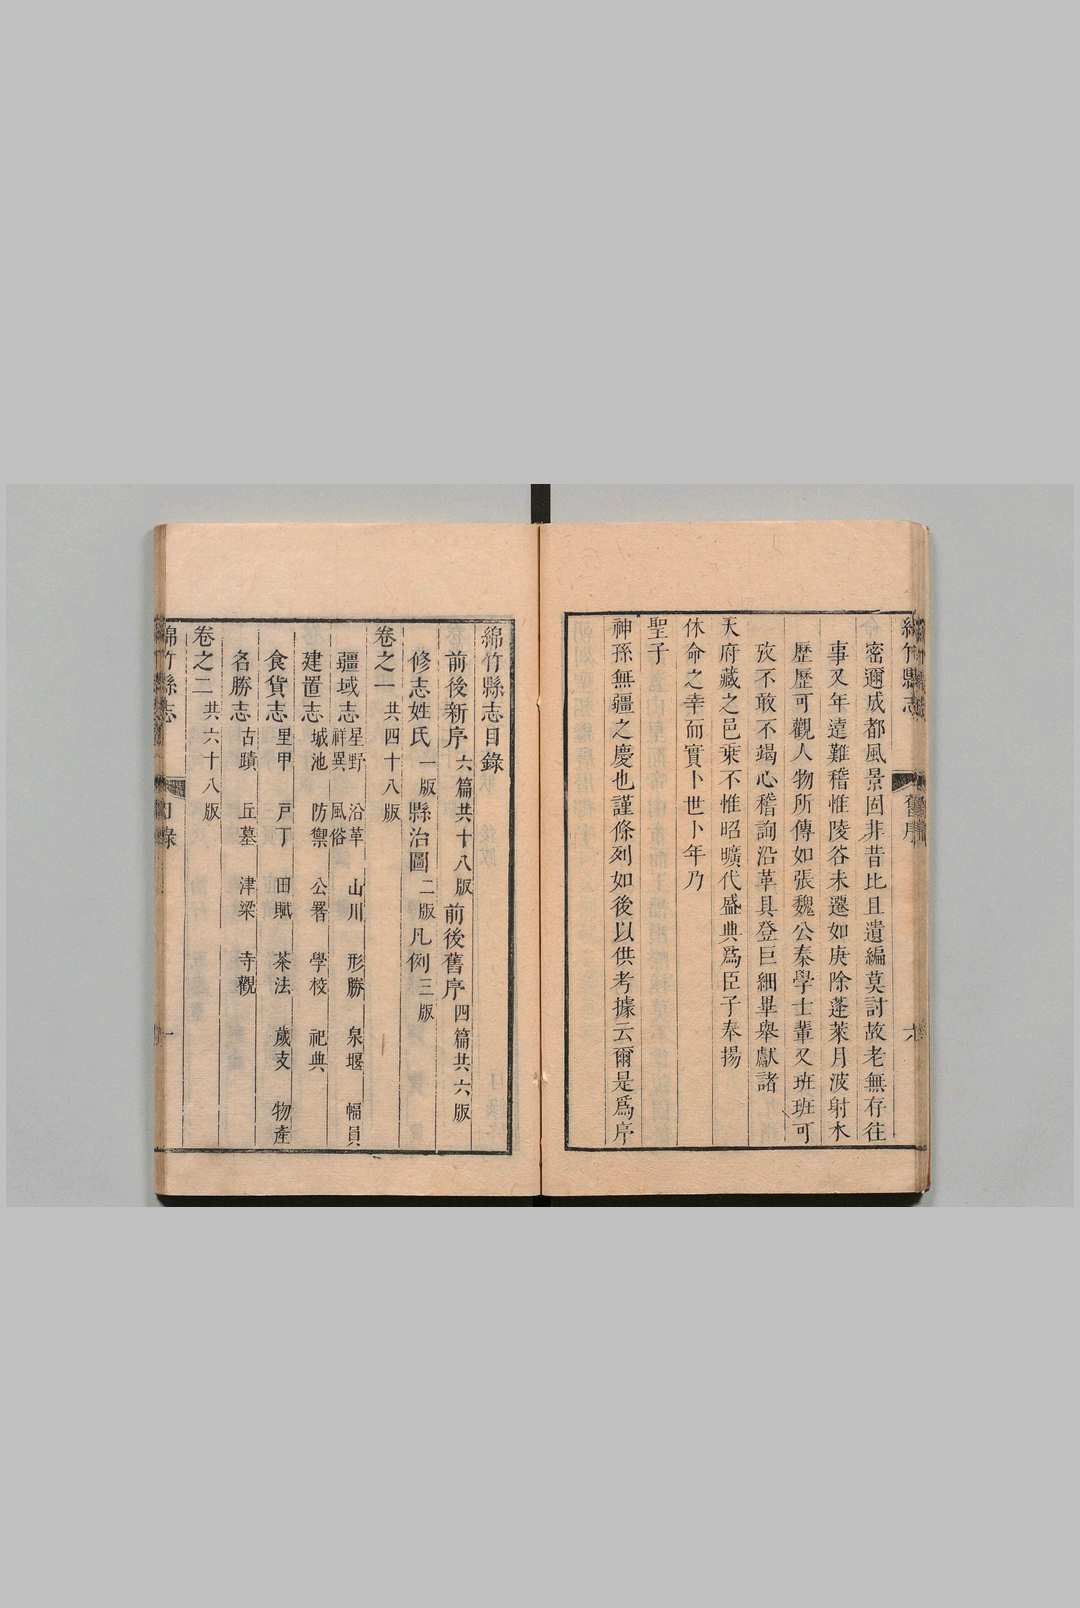 綿竹縣志
舊序
六
密邇成都風景固非昔比且遺編莫討故老無存往
事又年遠難稽惟陵谷未遷如庚除蓬萊月波射水
歷歷可觀人物所傳如張魏公秦學士輩又班班可
攷不敢不竭心稽詢沿革具登巨細畢舉獻諸
天府藏之邑乘不惟昭曠代盛典爲臣子奉揚
休命之幸而實卜世卜年乃
聖子
神孫無疆之慶也謹條列如後以供考據云爾是爲序
綿竹縣志目錄
前後新序 六篇共十八版 前後舊序 四篇共六版
修志姓氏 一版 縣治圖 二版 凡例 三版
卷之一 共四十八版
疆域志 星野 沿革 山川 形勝 泉堰 幅員 祥異 風俗
建置志 城池 防禦 公署 學校 祀典
食貨志 里甲 戸丁 田賦 茶法 歲支 物產
名勝志 古蹟 丘墓 津梁 寺觀
卷之二 共六十八版
綿竹縣志
目錄
一